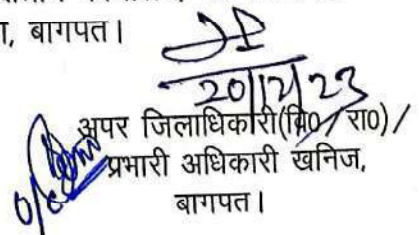 बागपत।
20/12/23
अपर जिलाधिकारी(वि0/रा0)/
प्रभारी अधिकारी खनिज,
बागपत।